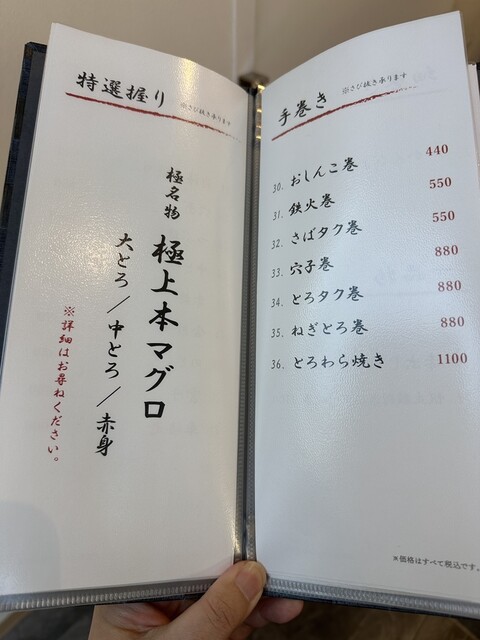 特選握り
※さび抜き承ります
極名物
極上本マグロ
大とろ／中とろ／赤身
※詳細はお尋ねください。
手巻き
※さび抜き承ります
30. おしんこ巻 440
31. 鉄火巻 550
32. さばタク巻 550
33. 穴子巻 880
34. とろタク巻 880
35. ねぎとろ巻 880
36. とろわら焼き 1100
※価格はすべて税込です。